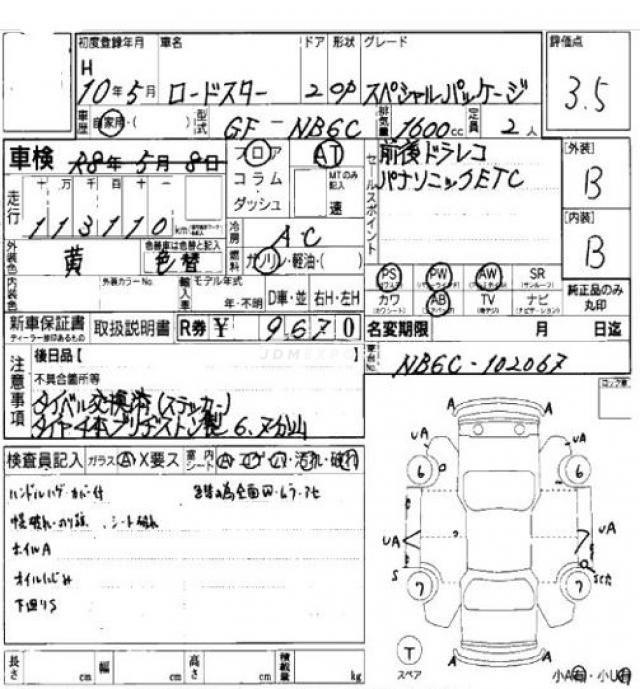 初度登録年月 車名 ドア 形状 グレード 評価点
H
10年5月 ロードスター 2 OP スペシャルパッケージ 3.5
車歴 自家用・( ) 型式 GF-NB6C 排気量 1600cc 定員 2人
車検 R8年5月8日 フロア AT セールスポイント 前後ドラレコ [外装]
コラム MTのみ記入 パナソニックETC B
ダッシュ 速
走行 十 万 千 百 十 一 [内装]
113110 km 冷房 A.C B
外装色 黄 色替車は色替と記入 色替 燃料 ガソリン・軽油・( )
PS PW AW SR 純正品のみ
カワ AB TV ナビ 丸印
内装色 外装カラーNo. 輸入車 モデル年式 年・不明 D車・並 右H・左H
新車保証書 取扱説明書 R券 ¥ 9670 名変期限 月 日迄
ディーラー印あるもの
JDMEXPO
注意事項 後日品【 】 車台No. NB6C-102067
不具合箇所等
タイベル交換済(ステッカー)
タイヤ4本ブリヂストン製 6、7分山
検査員記入 ガラス A X要ス 室内 シート
ハンドルハゲ・カバー付
幌破れ シート破れ
ホイルA
オイルにじみ
下廻りS
A A
UA UA
6 6
UA UA
S
7 7
A A
T
スペア
長さ cm 幅 cm 高さ cm 積載量 kg 小A有・小U有